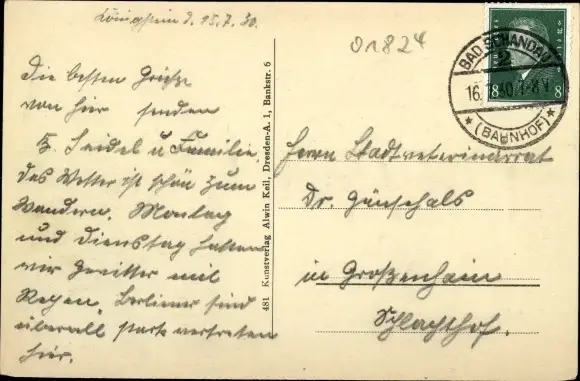 Königstein d. 15.7.30.
01824
BAD SCHANDAU
2
16.7.30.7-8V
* (BAHNHOF) *
8 8
Die besten Grüße
von hier senden
Seidel u Familie.
das Wetter ist schön zum
Wandern. Montag
und Dienstag hatten
wir Gewitter und
Regen. Berliner sind
überall stark vertreten
hier.
481 Kunstverlag Alwin Keil, Dresden-A. 1, Bankstr. 6
Herrn Stadtveterinärrat
Dr.
in Großenhain
Schlachthof.